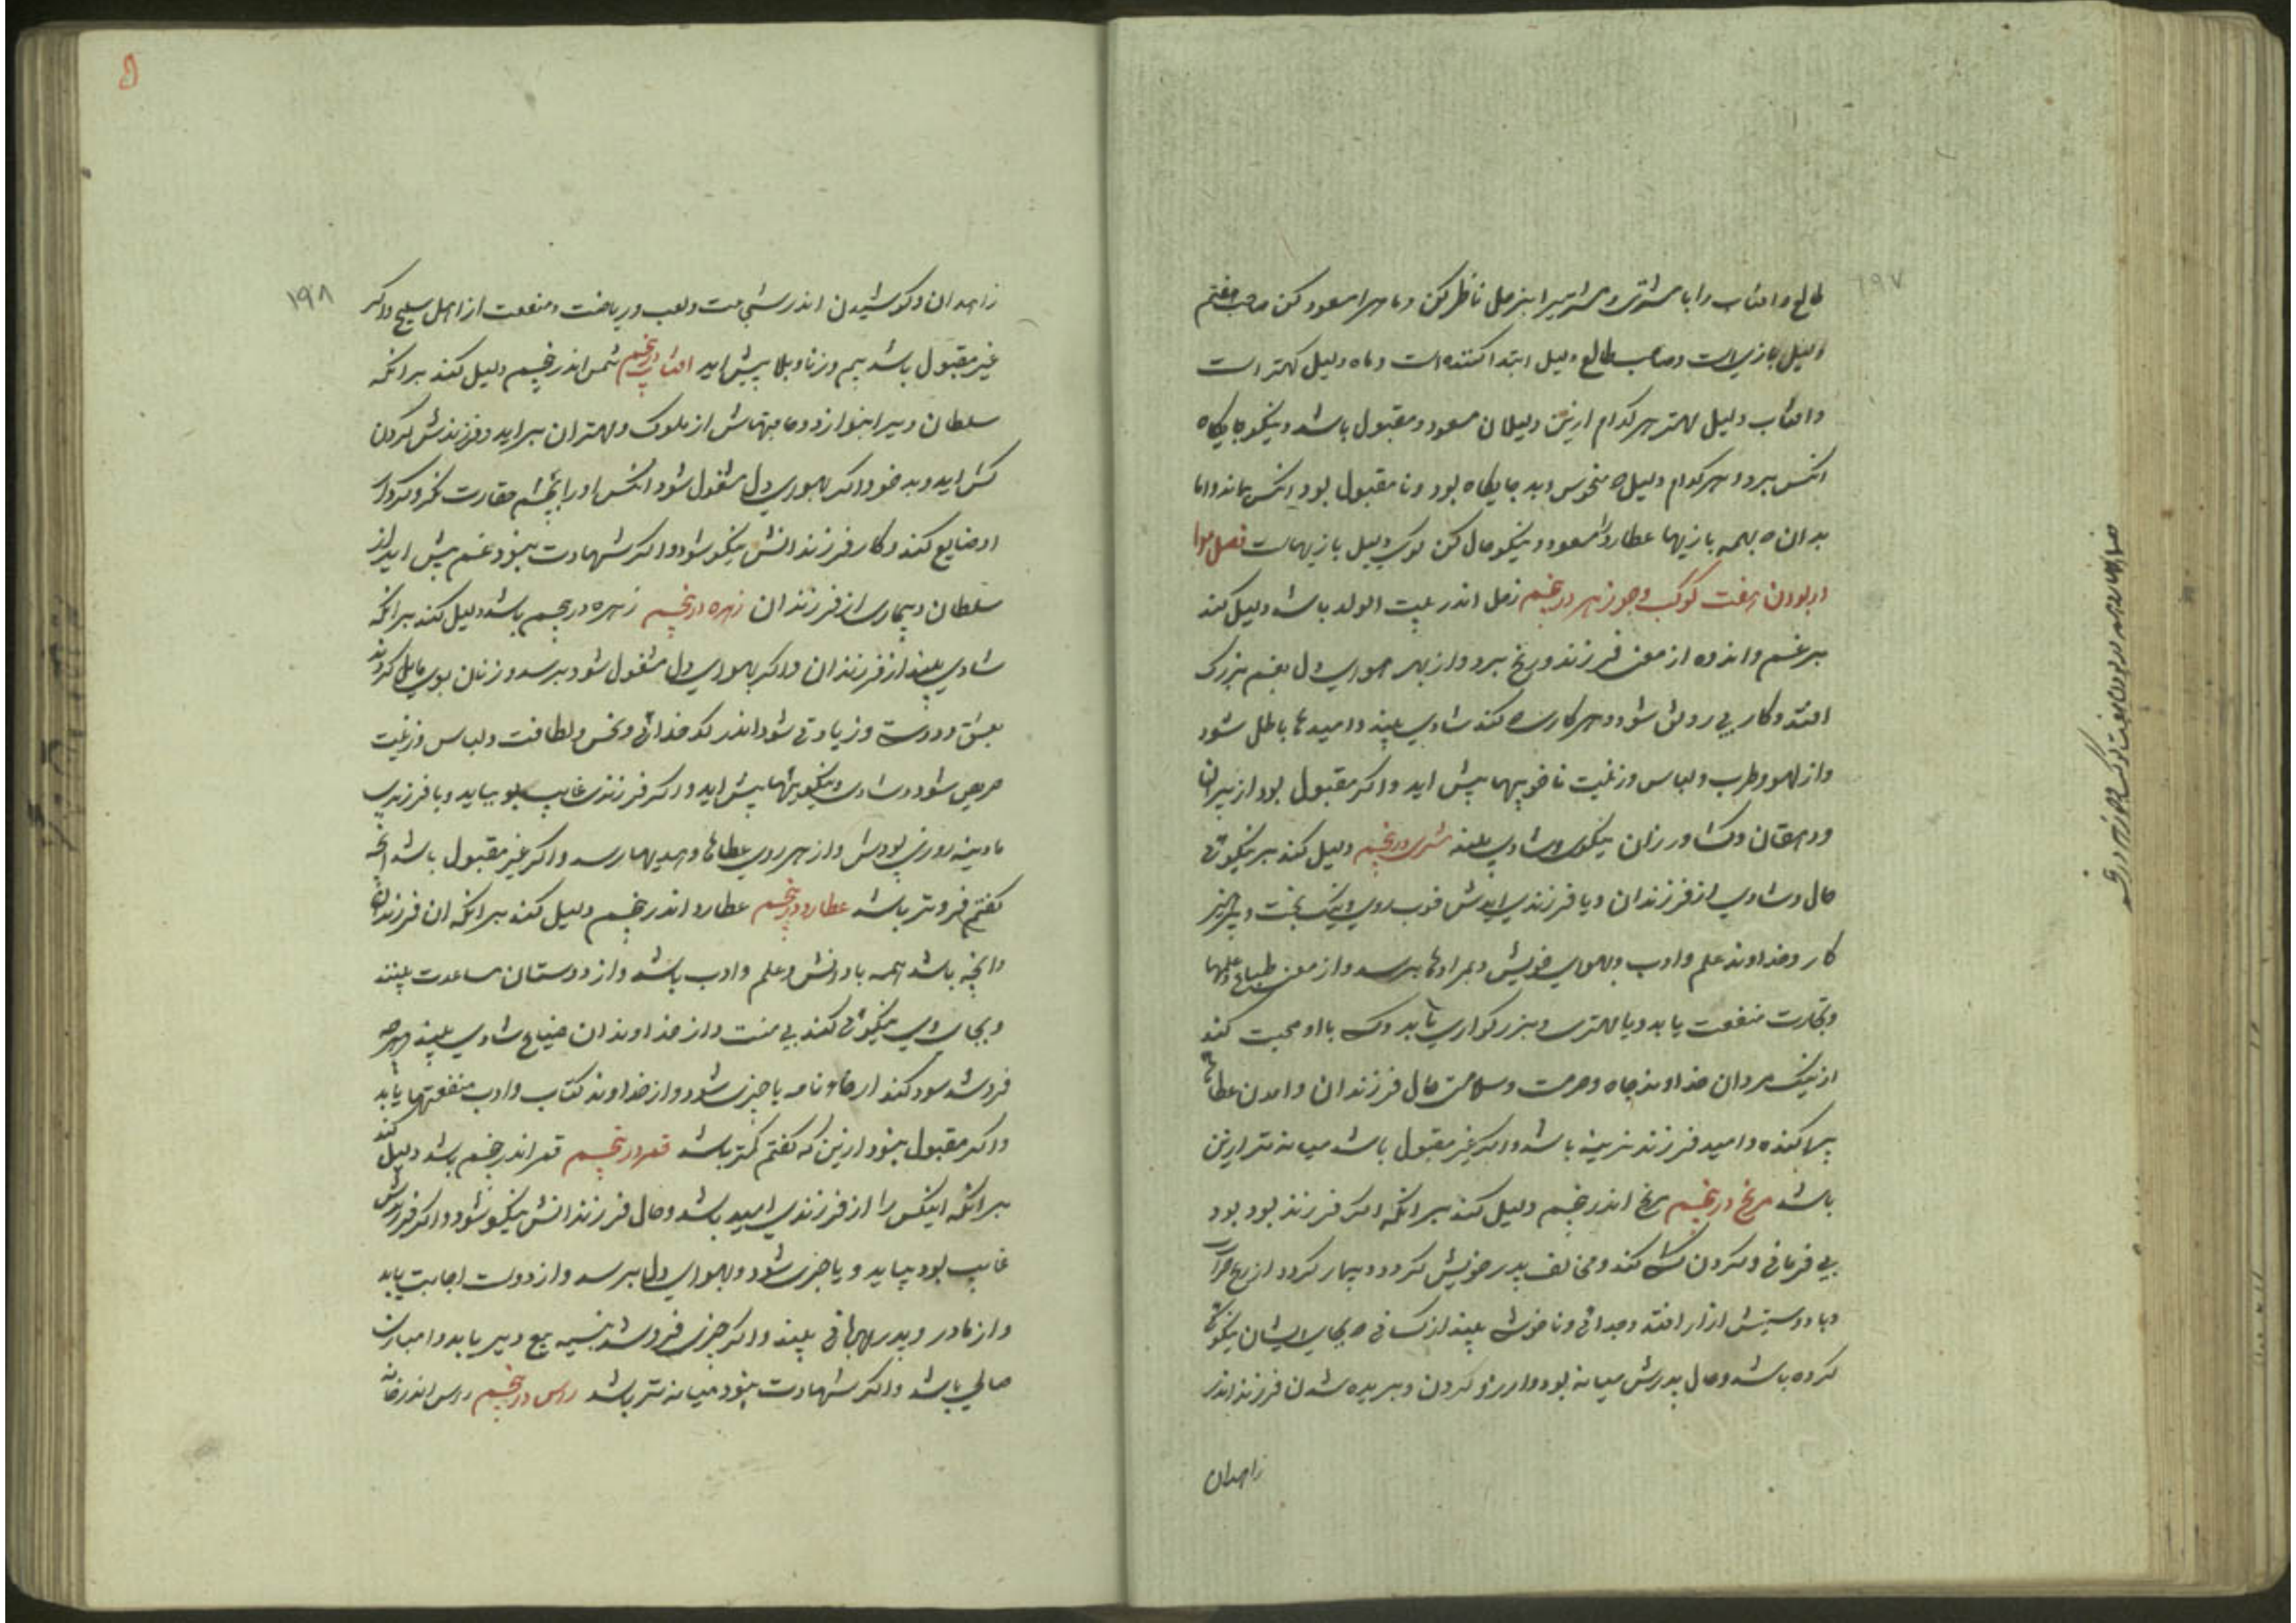 ۱۹۷
طالع و افتاب را با مشتری و مشتریرا بزحل ناظر کن و ماهرا مسعود کن صاحب هفتم
دلیل بازی است و صاحب طالع دلیل ابتدا کننده است و ماه دلیل کهتر است
و افتاب دلیل مهتر هر کدام ازین دلیلان مسعود و مقبول باشد و نیکو جایکاه
انکس ببرد و هر کدام دلیل منحوس و بد جایکاه بود و نا مقبول بود انکس بماند و اما
بدان بهمه بازیها عطارد را مسعود و نیکو حال کن کوی دلیل بازیهاست فصل
اربودن هفت کوکب و جوزهر در پنجم زحل اندر بیت الولد باشد دلیل کند
بر غم و اندوه از معنی فرزند و رنج برد و از بهر هوای دل بغم بزرک
افتد و کار بی رونق شود و هر کاری کند شادی بیند و امیدها باطل شود
و از لهو و طرب و لباس و زینت ناخوبیها پیش اید و اکر مقبول بود از پیران
و دهقان و کشاورزان نیکوی و شادی بیند مشتری در پنجم دلیل کند بر نیکوئی
حال و شادی از فرزندان و یا فرزندی ایدش خوب روی و نیک بخت و
کار و خداوند علم و ادب و بهوای خویش و بمرادها برسد و از معنی
و تجارت منفعت یابد و با مهتری و بزرکواری یابد و با او محبت کند
از نیک مردان خداوند جاه و حرمت و سلامتی حال فرزندان و امدن عطاها
پراکنده و امید فرزند نرینه باشد و اکر غیر مقبول باشد میانه تر ازین
باشد مریخ در پنجم مریخ اندر پنجم دلیل کند بر انکه اکر فرزند بود بود
بی فرمانی و کردن کشی کند و مخالف پدر خویش کردد و بیمار کردد از
و با دوستیش ازار افتد و جدائی و ناخوشی بیند از کسانی بجای ایشان نیکوئی
کرده باشد و حال پدرش میانه بود و ارزو کردن و بریده شدن فرزند اندر
زاهدان
۱۹۸
زاهدان و کوشیدن اندر شجاعت و لعب و ریاضت و منفعت از اهل سلیح و اکر
غیر مقبول باشد بیم و زنا و بلا پیش اید افتاب در پنجم شمس اندر پنجم دلیل کند بر انکه
سلطان ویرا بنوازد و حاجتهاش از ملوک و مهتران براید و فرزندش کردن
کش اید و بد خو و اکر بهوای دل مشغول شود انکس او را بچشم حقارت نکرد
او ضایع کند و کار فرزندانش نیکو شود و اکر شهادت نبود غم پیش اید از
سلطان و بیماری از فرزندان زهره در پنجم زهره در پنجم باشد دلیل کند بر انکه
شادی بیند از فرزندان و اکر بهوای دل مشغول شود برسد و زنان بوی مایل کردند
بعشق و دوستی و زیادتی شود اندر کدخدائی و لطافت و لباس و زینت
حریص شود و شادی و نیکوئیها پیش اید و اکر فرزندی غایب بود بیاید و یا فرزندی
مادینه روزی بودش و از هر روی عطاها و هدیهها رسد و اکر غیر مقبول باشد انچه
کفتم فروتر باشد عطارد در پنجم عطارد اندر پنجم دلیل کند بر انکه ان فرزندان
و انچه باشد همه با دانش و علم و ادب باشد و از دوستان مساعدت بیند
و بجای وی نیکوئی کند بی منت و از خداوندان ضیاع شادی بیند و هرچه
فروشد سود کند از نامه یا خبری شود و از خداوند کتاب و ادب منفعتها یابد
و اکر مقبول نبود ازین که کفتم کمتر باشد قمر در پنجم قمر اندر پنجم باشد دلیل کند
بر انکه اینکس را از فرزندی امید باشد و حال فرزندانش نیکو شود و اکر فرزندش
غایب بود بیاید و یا خبری شود و بهوای دل برسد و از دولت اجابت یابد
و از مادر و پدر مهربانی بیند و اکر چیزی فروشد بنسیه بیع و دیر یابد و
حالی باشد و اکر شهادت نبود میانه تر باشد راس در پنجم راس اندر خانه